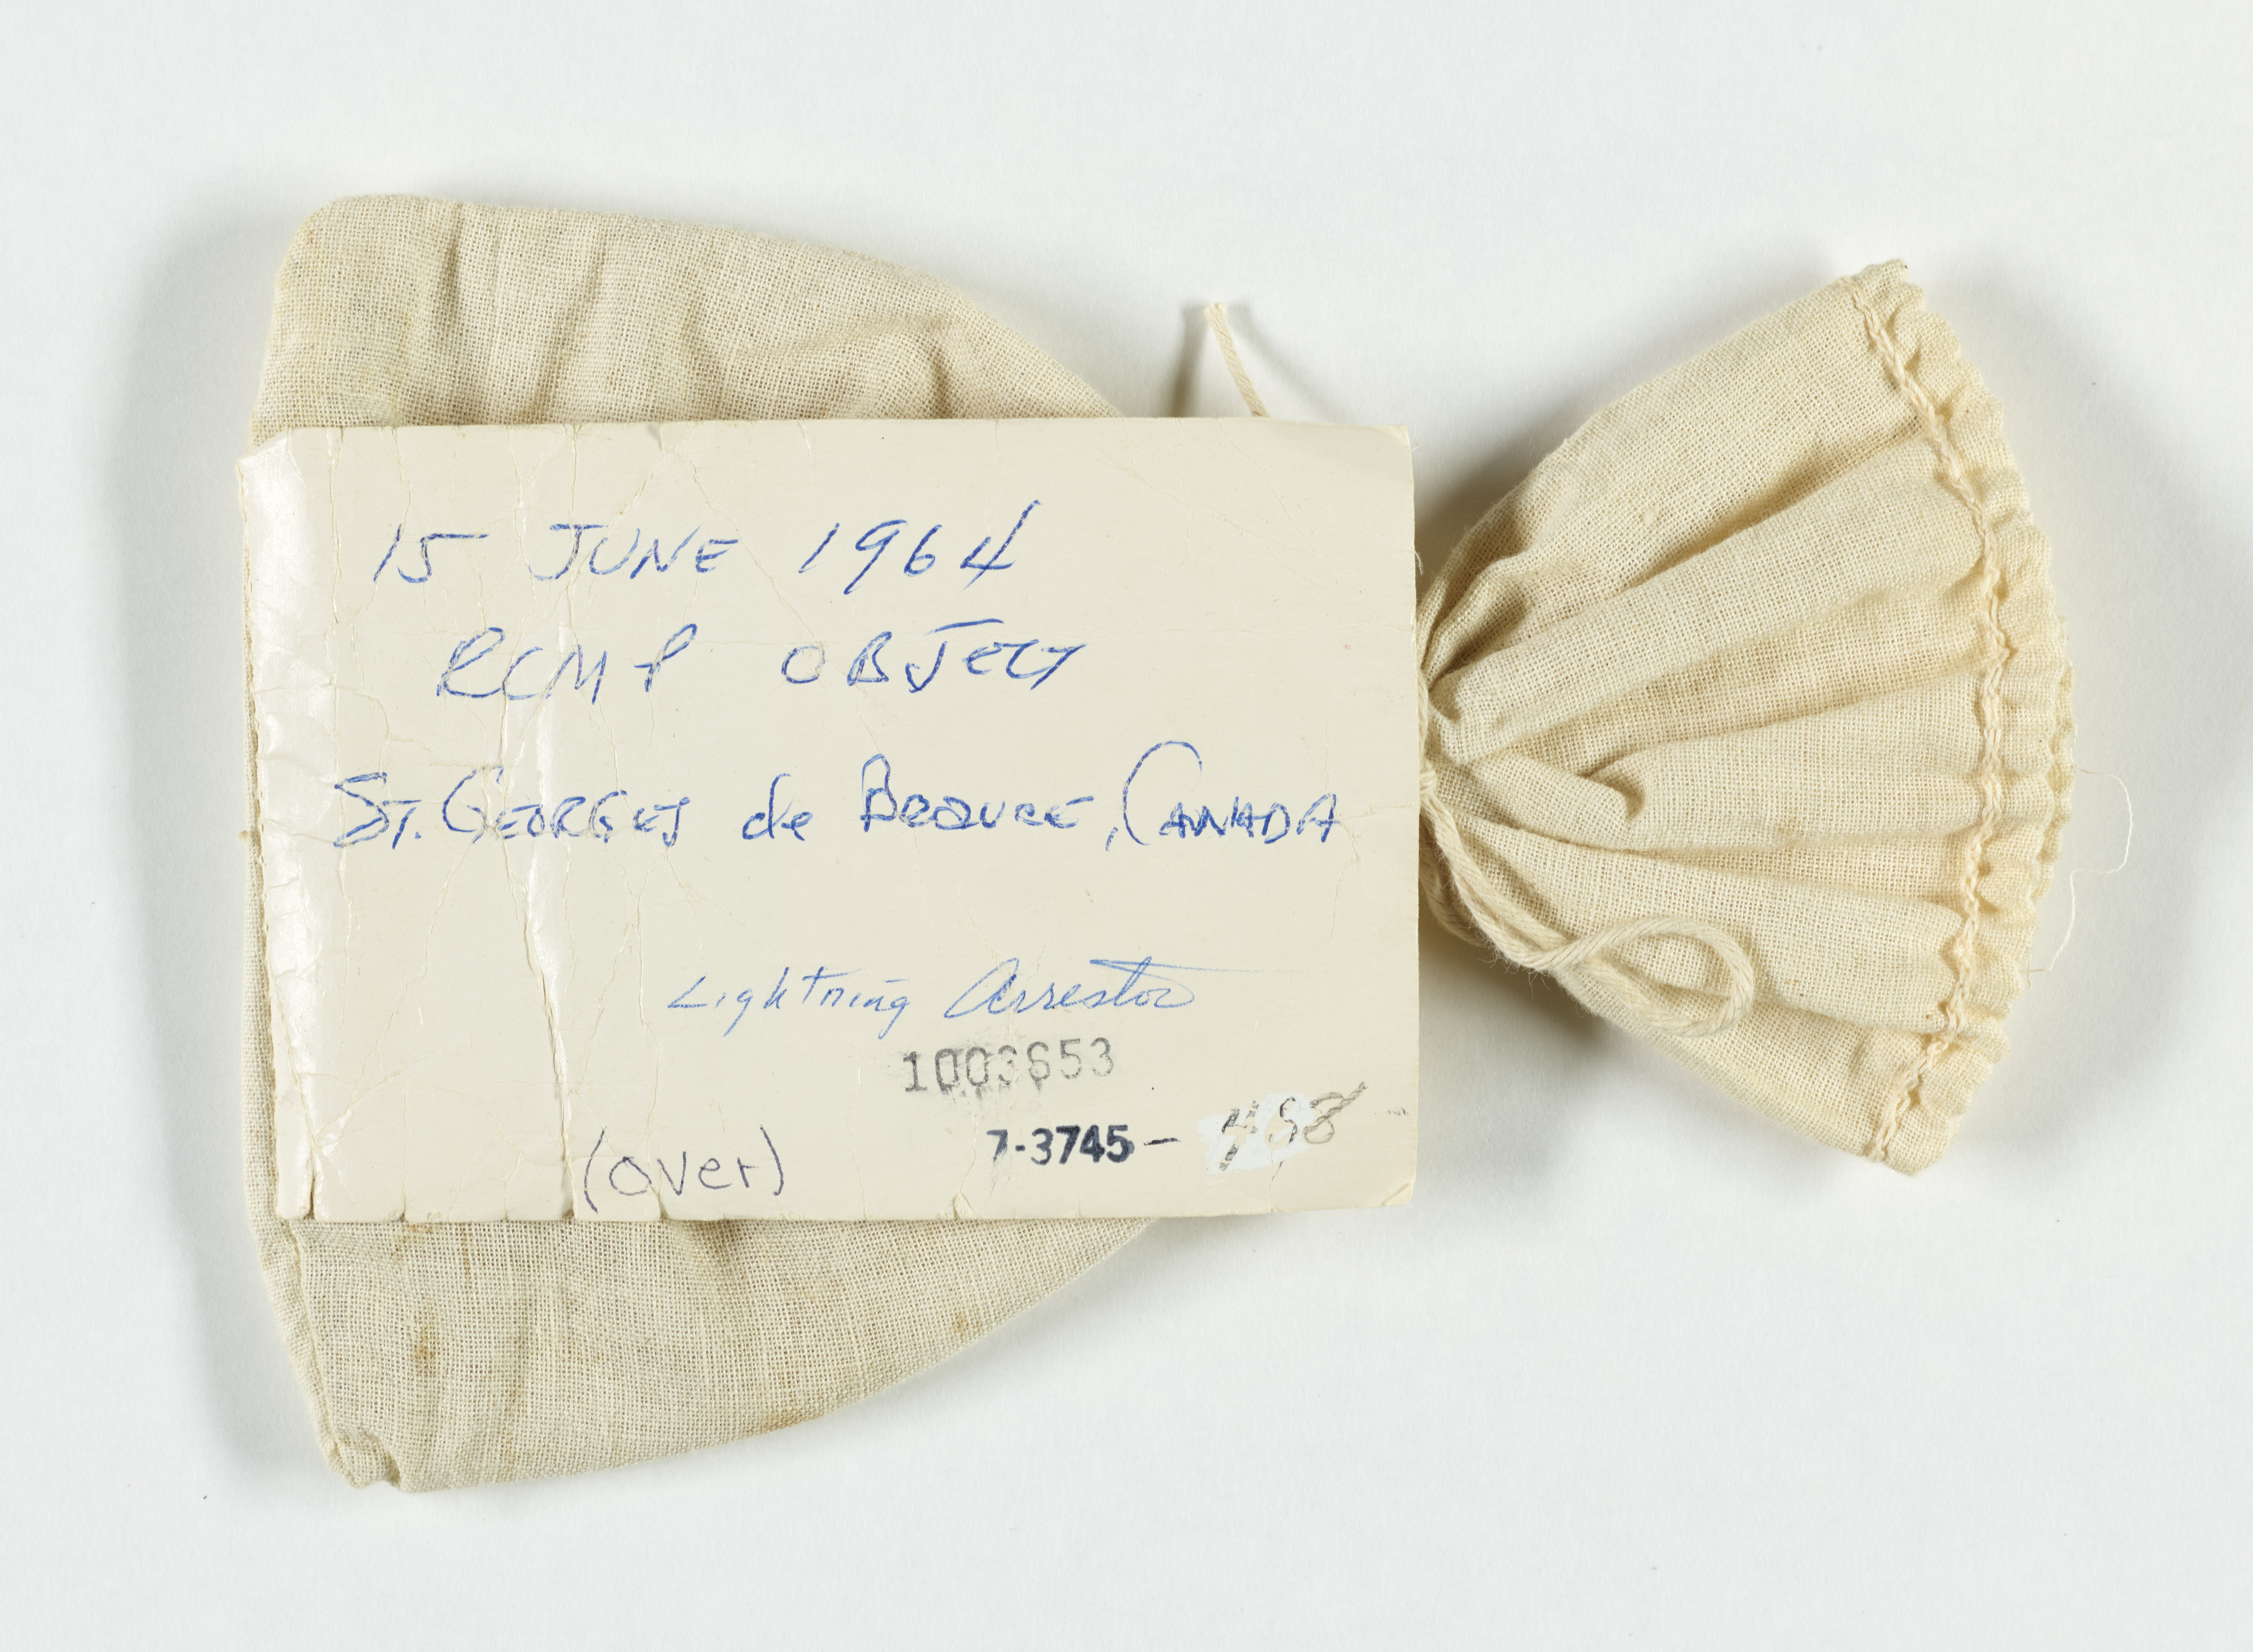 15 JUNE 1964
RCMP OBJECT
ST. GEORGES de BEAUCE, CANADA
Lightning Arrestor
1003653
7-3745-468
(over)